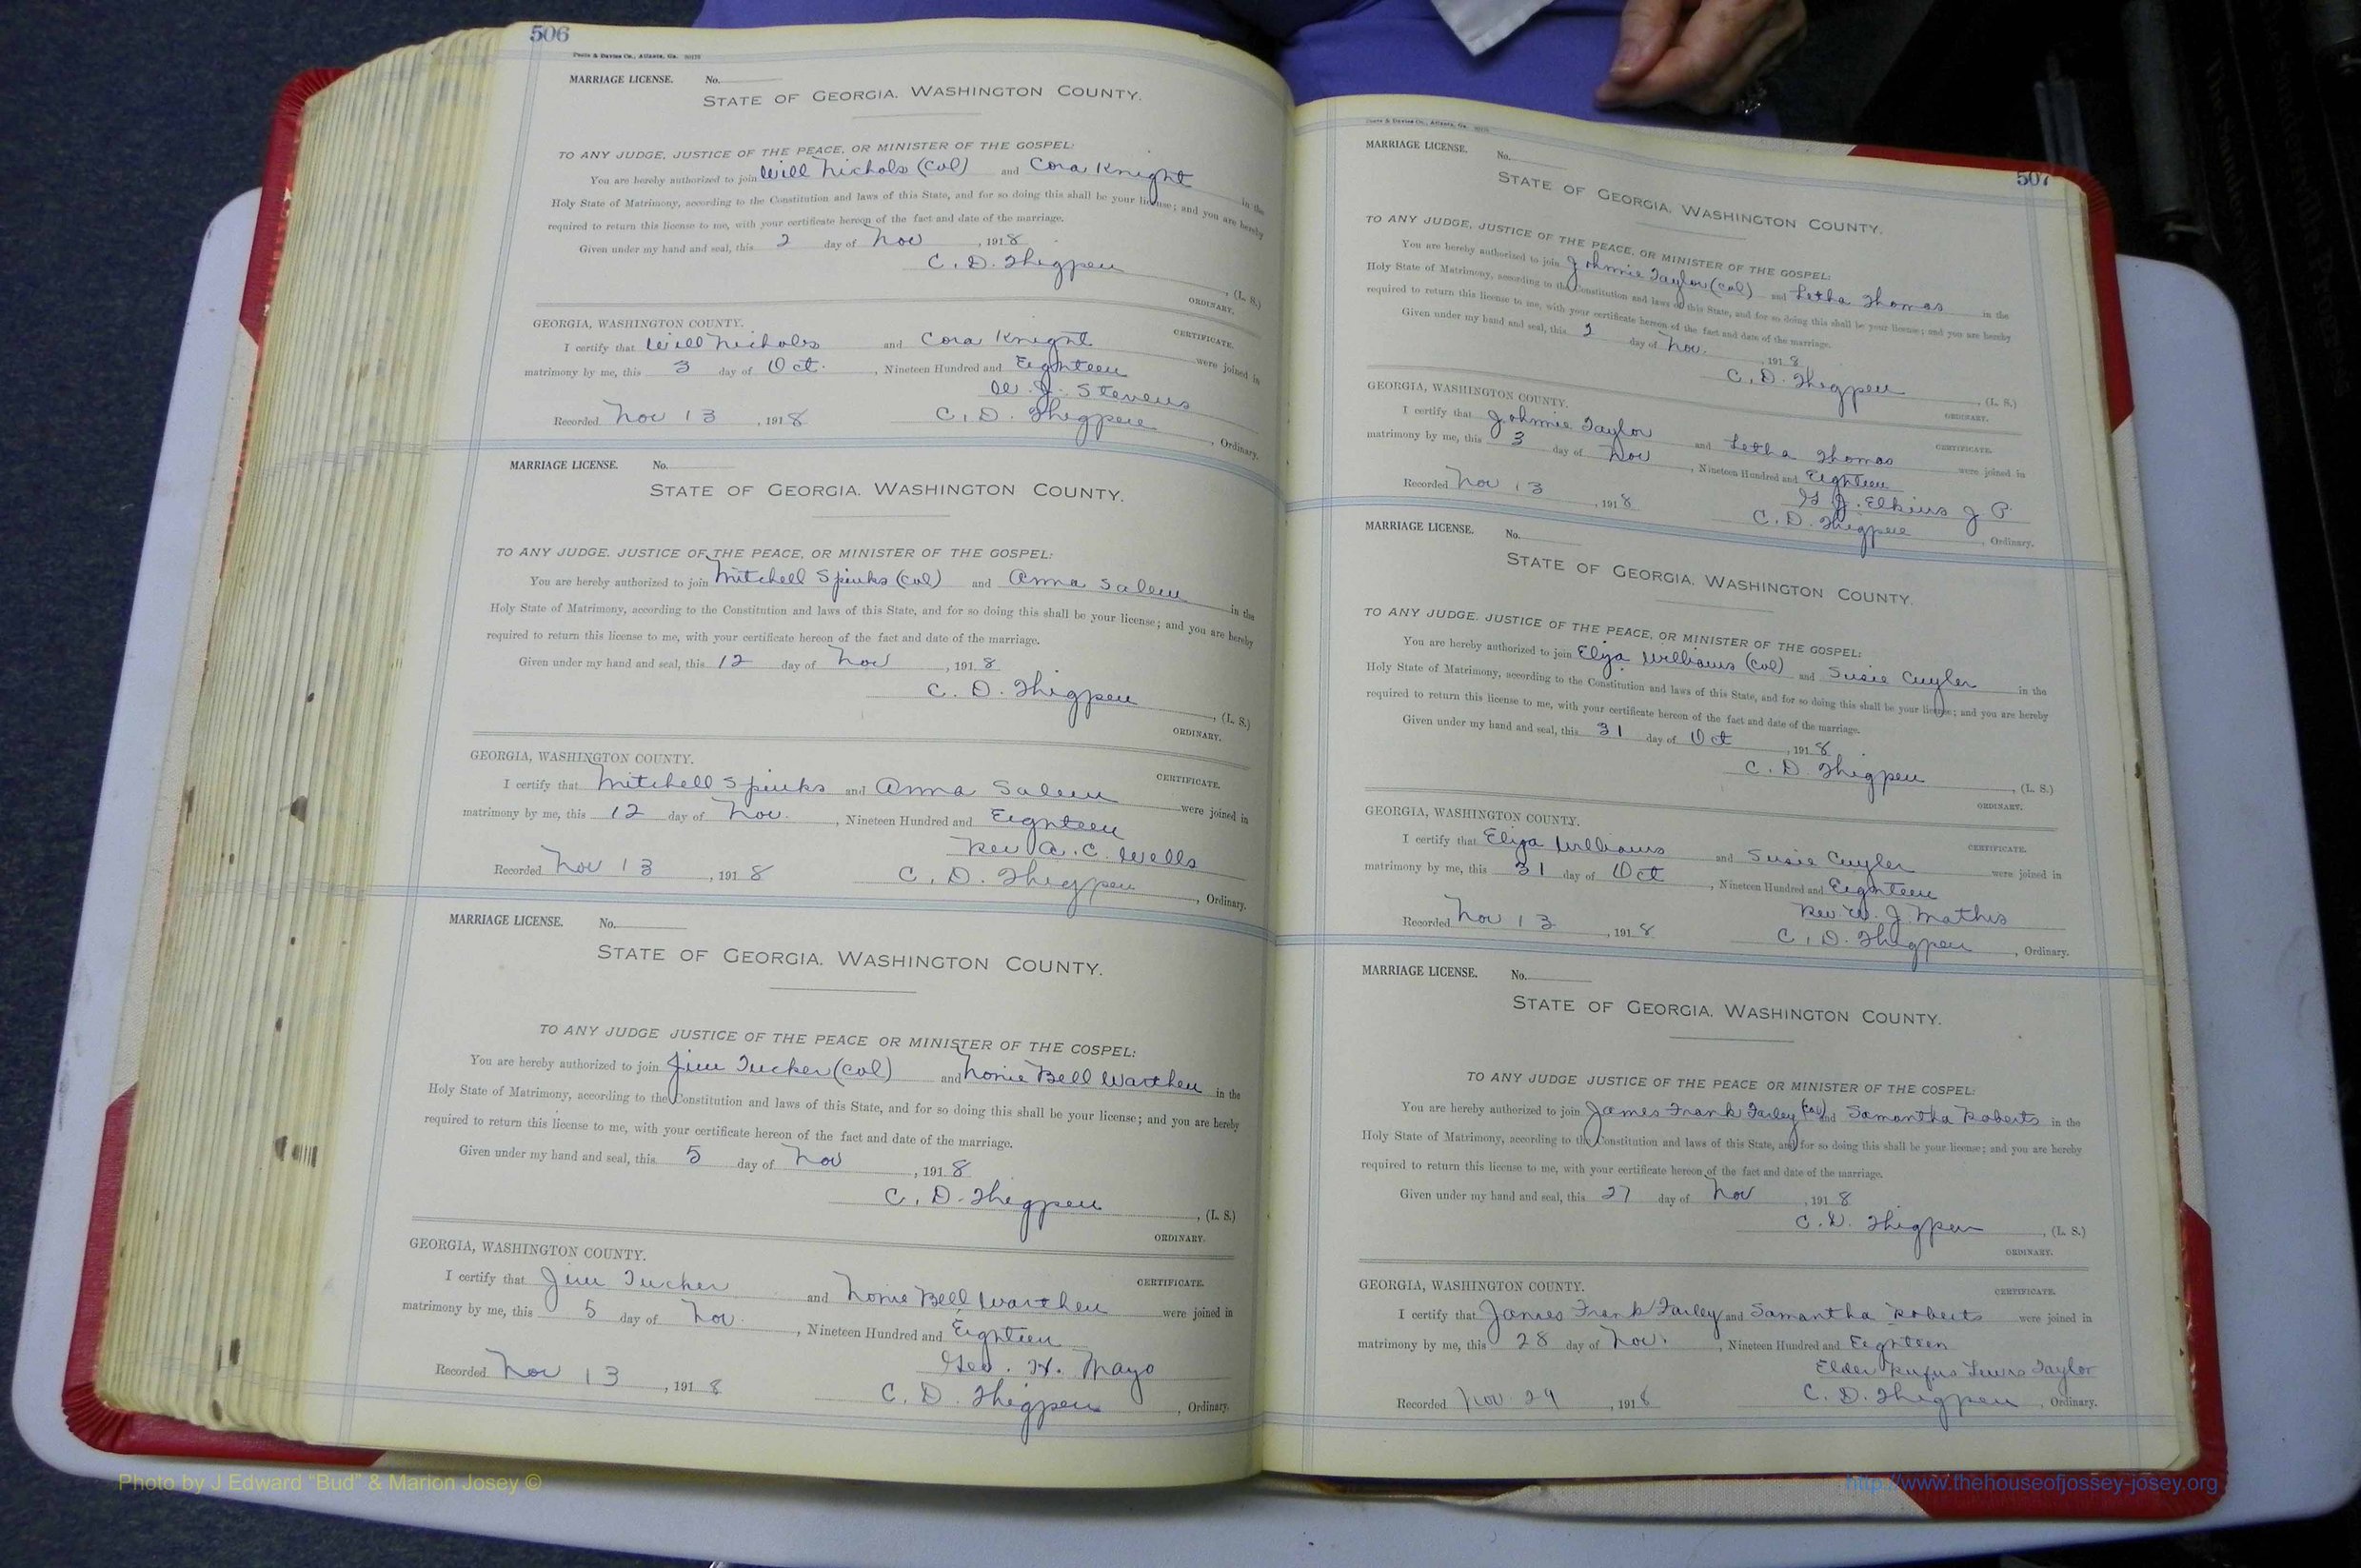 506
Foote & Davies Co., Atlanta, Ga.
MARRIAGE LICENSE. No.
STATE OF GEORGIA. WASHINGTON COUNTY.
TO ANY JUDGE, JUSTICE OF THE PEACE, OR MINISTER OF THE GOSPEL:
You are hereby authorized to join Will Nichols (Col) and Cora Knight in the
Holy State of Matrimony, according to the Constitution and laws of this State, and for so doing this shall be your license; and you are hereby
required to return this license to me, with your certificate hereon of the fact and date of the marriage.
Given under my hand and seal, this 2 day of Nov, 1918
C. D. Thigpen, (L. S.)
ORDINARY.
GEORGIA, WASHINGTON COUNTY. CERTIFICATE.
I certify that Will Nichols and Cora Knight were joined in
matrimony by me, this 3 day of Oct., Nineteen Hundred and Eighteen
W. J. Stevens
Recorded Nov 13, 1918 C. D. Thigpen, Ordinary.
MARRIAGE LICENSE. No.
STATE OF GEORGIA. WASHINGTON COUNTY.
TO ANY JUDGE, JUSTICE OF THE PEACE, OR MINISTER OF THE GOSPEL:
You are hereby authorized to join Mitchell Spinks (Col) and Anna Salem in the
Holy State of Matrimony, according to the Constitution and laws of this State, and for so doing this shall be your license; and you are hereby
required to return this license to me, with your certificate hereon of the fact and date of the marriage.
Given under my hand and seal, this 12 day of Nov, 1918
C. D. Thigpen, (L. S.)
ORDINARY.
GEORGIA, WASHINGTON COUNTY. CERTIFICATE.
I certify that Mitchell Spinks and Anna Salem were joined in
matrimony by me, this 12 day of Nov., Nineteen Hundred and Eighteen
Rev A. C. Wells
Recorded Nov 13, 1918 C. D. Thigpen, Ordinary.
MARRIAGE LICENSE. No.
STATE OF GEORGIA. WASHINGTON COUNTY.
TO ANY JUDGE JUSTICE OF THE PEACE OR MINISTER OF THE GOSPEL:
You are hereby authorized to join Jim Tucker (Col) and Nonie Bell Warthen in the
Holy State of Matrimony, according to the Constitution and laws of this State, and for so doing this shall be your license; and you are hereby
required to return this license to me, with your certificate hereon of the fact and date of the marriage.
Given under my hand and seal, this 5 day of Nov, 1918
C. D. Thigpen, (L. S.)
ORDINARY.
GEORGIA, WASHINGTON COUNTY. CERTIFICATE.
I certify that Jim Tucker and Nonie Bell Warthen were joined in
matrimony by me, this 5 day of Nov., Nineteen Hundred and Eighteen
Geo. H. Mayo
Recorded Nov 13, 1918 C. D. Thigpen, Ordinary.
507
Foote & Davies Co., Atlanta, Ga.
MARRIAGE LICENSE. No.
STATE OF GEORGIA. WASHINGTON COUNTY.
TO ANY JUDGE, JUSTICE OF THE PEACE, OR MINISTER OF THE GOSPEL:
You are hereby authorized to join Johnnie Taylor (Col) and Letha Thomas in the
Holy State of Matrimony, according to the Constitution and laws of this State, and for so doing this shall be your license; and you are hereby
required to return this license to me, with your certificate hereon of the fact and date of the marriage.
Given under my hand and seal, this 2 day of Nov., 1918
C. D. Thigpen, (L. S.)
ORDINARY.
GEORGIA, WASHINGTON COUNTY. CERTIFICATE.
I certify that Johnnie Taylor and Letha Thomas were joined in
matrimony by me, this 3 day of Nov, Nineteen Hundred and Eighteen
J. Elkins J P
Recorded Nov 13, 1918 C. D. Thigpen, Ordinary.
MARRIAGE LICENSE. No.
STATE OF GEORGIA. WASHINGTON COUNTY.
TO ANY JUDGE, JUSTICE OF THE PEACE, OR MINISTER OF THE GOSPEL:
You are hereby authorized to join Elija Williams (Col) and Susie Cuyler in the
Holy State of Matrimony, according to the Constitution and laws of this State, and for so doing this shall be your license; and you are hereby
required to return this license to me, with your certificate hereon of the fact and date of the marriage.
Given under my hand and seal, this 31 day of Oct, 1918
C. D. Thigpen, (L. S.)
ORDINARY.
GEORGIA, WASHINGTON COUNTY. CERTIFICATE.
I certify that Elija Williams and Susie Cuyler were joined in
matrimony by me, this 31 day of Oct, Nineteen Hundred and Eighteen
Rev. W. J. Mathis
Recorded Nov 13, 1918 C. D. Thigpen, Ordinary.
MARRIAGE LICENSE. No.
STATE OF GEORGIA. WASHINGTON COUNTY.
TO ANY JUDGE JUSTICE OF THE PEACE OR MINISTER OF THE GOSPEL:
You are hereby authorized to join James Frank Farley (Col) and Samantha Roberts in the
Holy State of Matrimony, according to the Constitution and laws of this State, and for so doing this shall be your license; and you are hereby
required to return this license to me, with your certificate hereon of the fact and date of the marriage.
Given under my hand and seal, this 27 day of Nov, 1918
C. D. Thigpen, (L. S.)
ORDINARY.
GEORGIA, WASHINGTON COUNTY. CERTIFICATE.
I certify that James Frank Farley and Samantha Roberts were joined in
matrimony by me, this 28 day of Nov., Nineteen Hundred and Eighteen
Elder Rufus Lewis Taylor
Recorded Nov 29, 1918 C. D. Thigpen, Ordinary.
Photo by J Edward "Bud" & Marion Josey ©
http://www.thehouseofjossey-josey.org